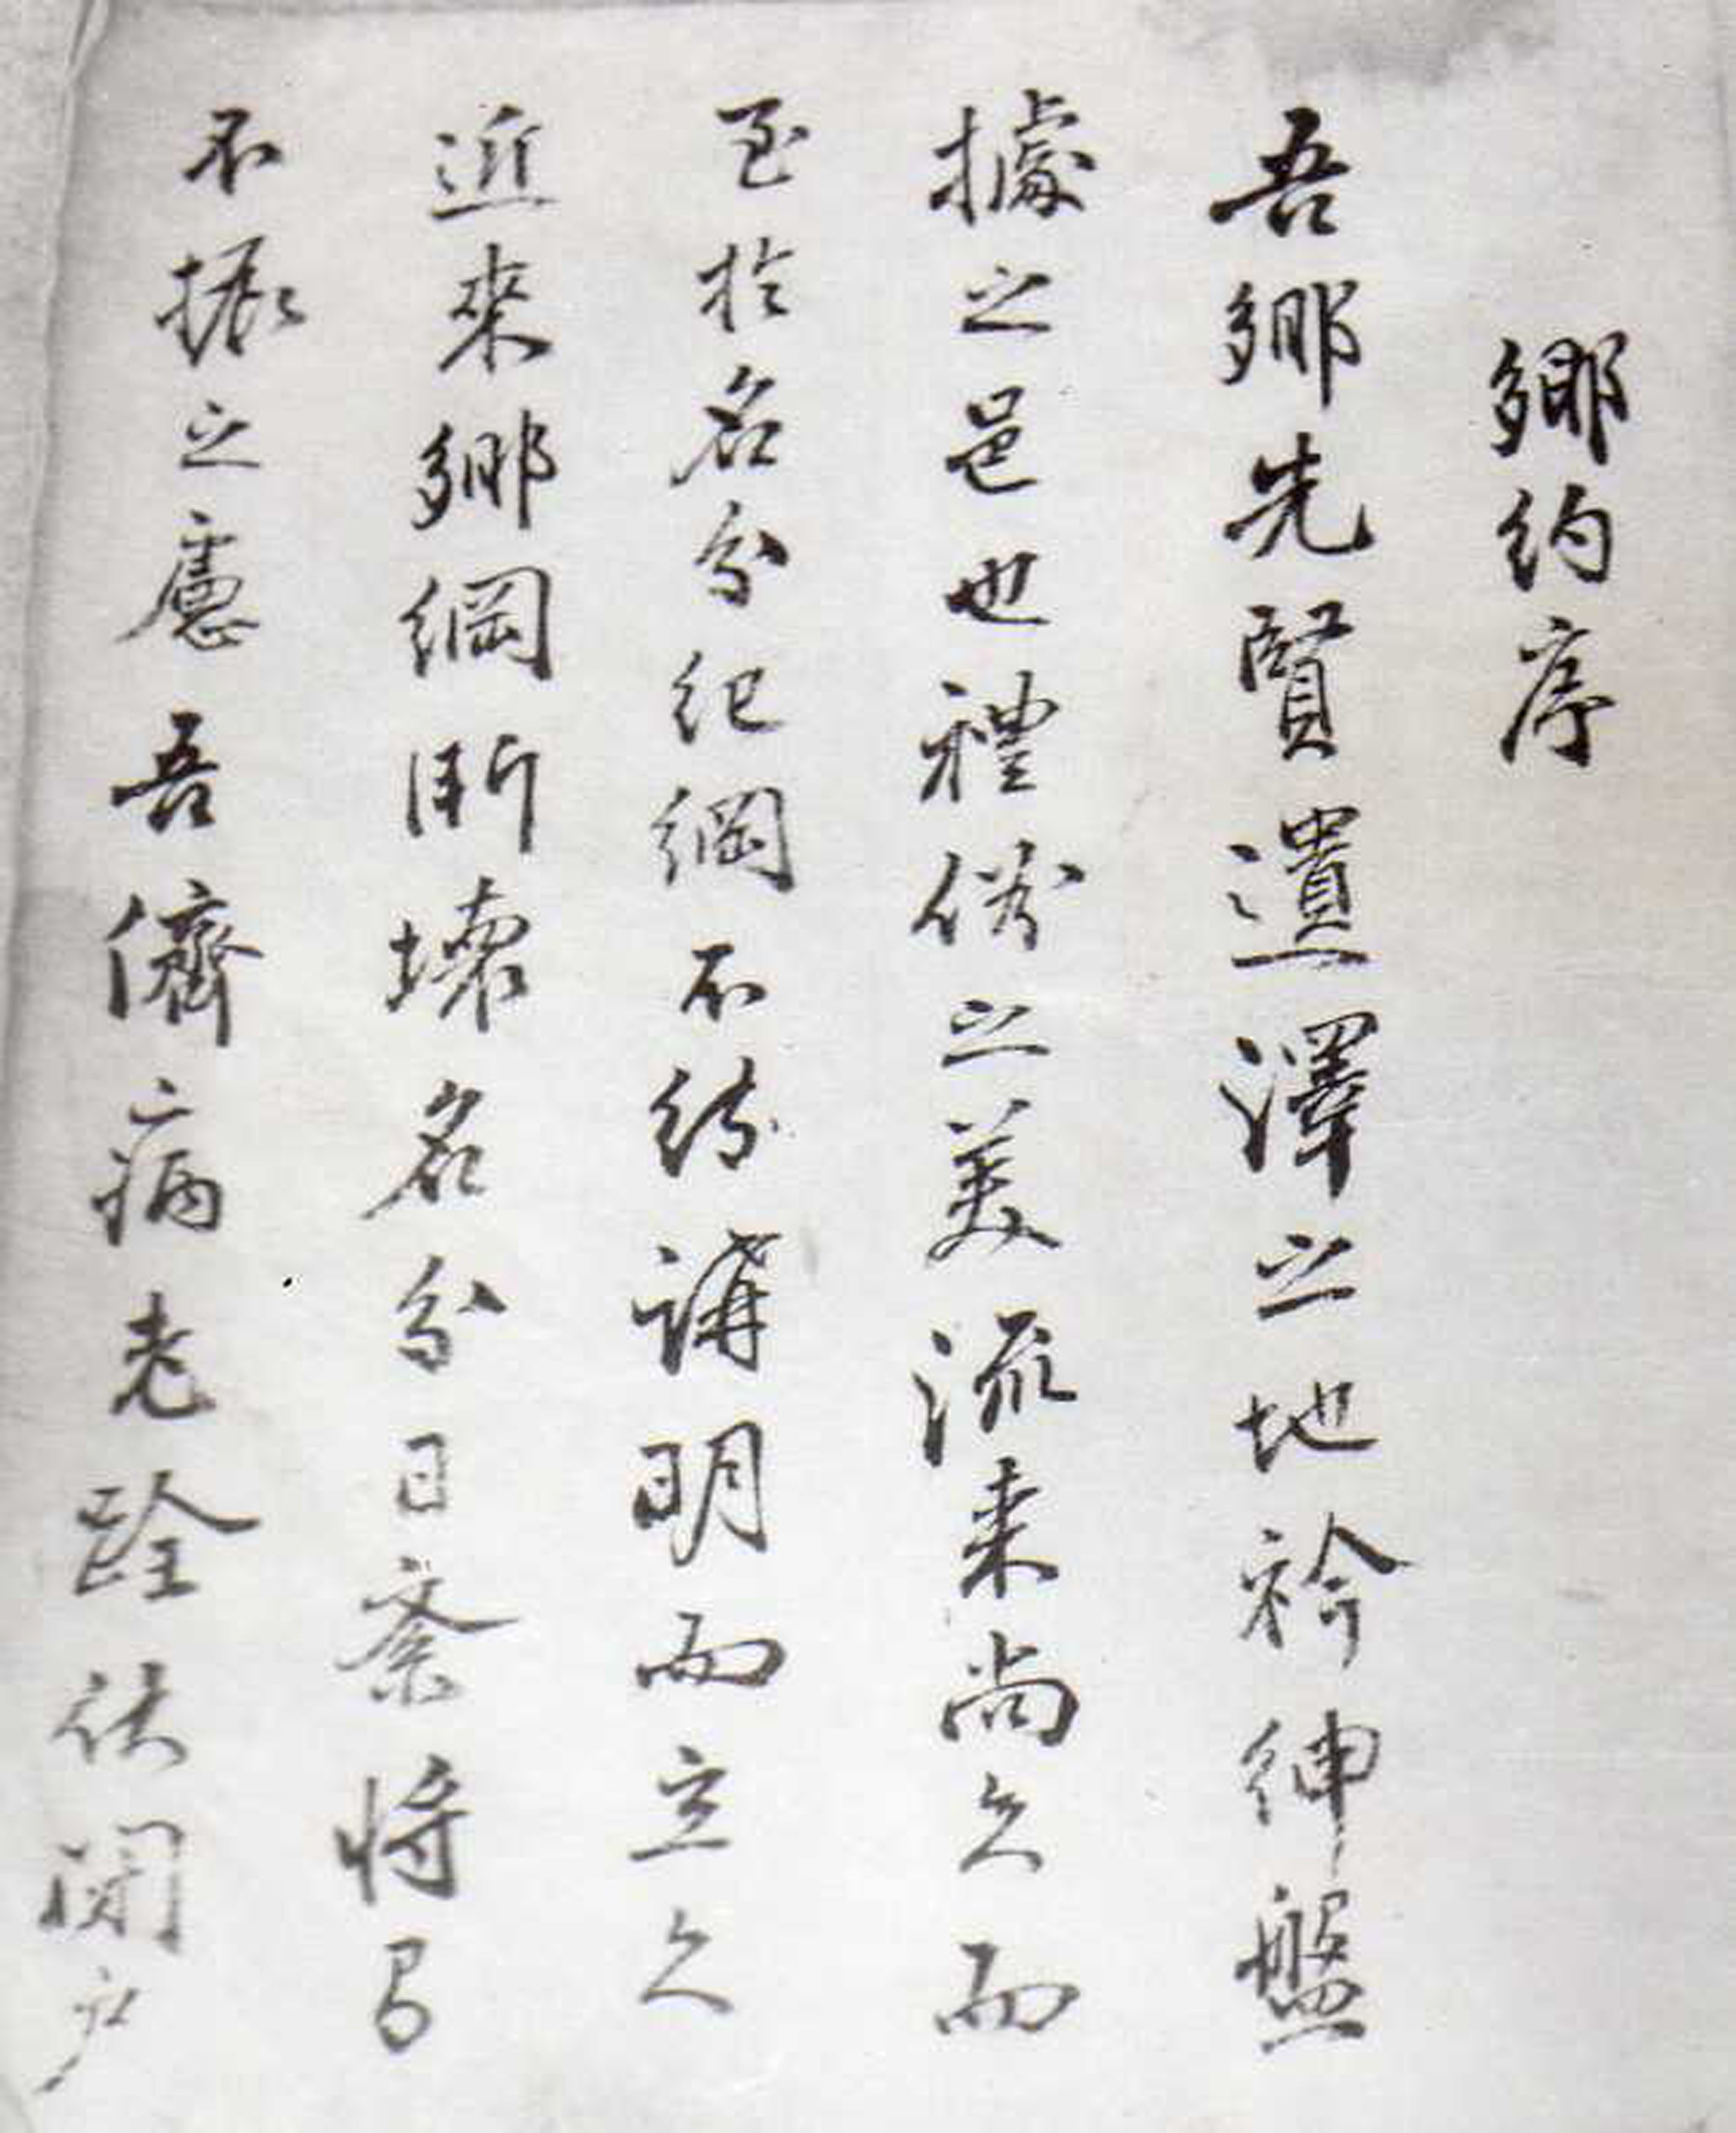 鄉約序
吾鄉先賢遺澤之地衿紳盤
據之邑也禮俗之美流来尚久而
至於名分紀綱不待講明而立久
近來鄉綱漸壞名分日紊將有
不振之慮吾儕病老跧伏閉戶